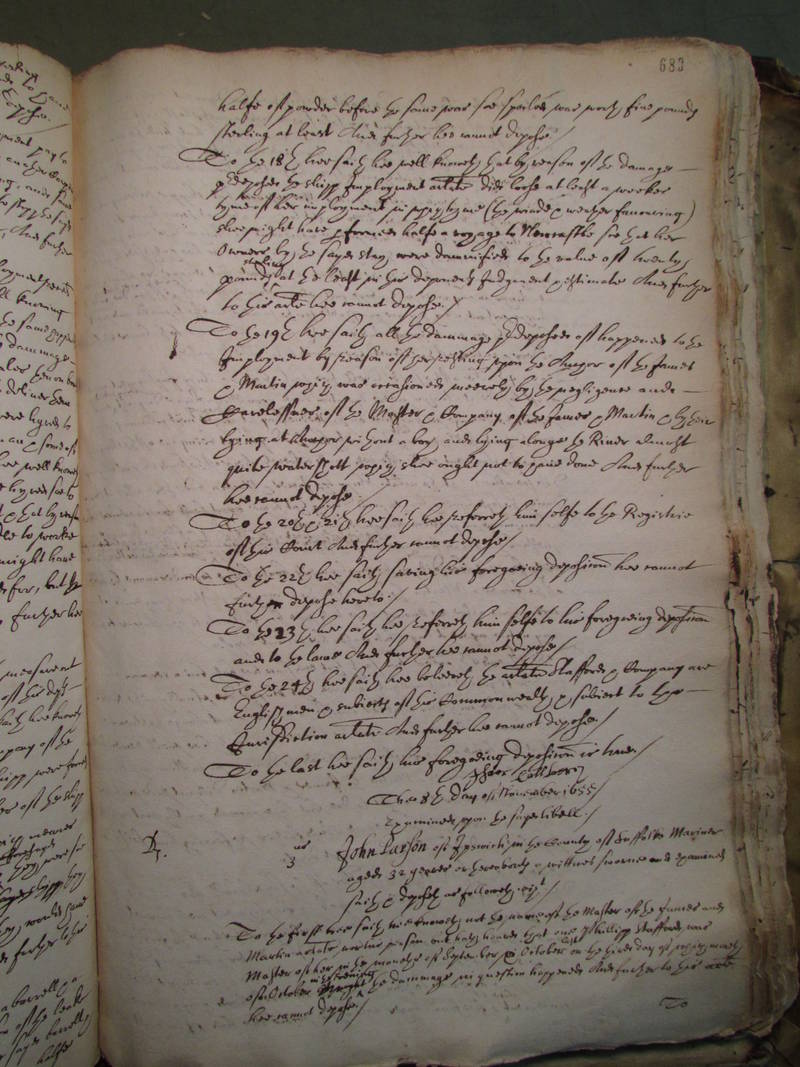 683
halfe of powder before the same was soe spoiled was worth five pounds
sterling at least And further hee cannot depose./
To the 18th hee saith hee well knoweth that by reason of the damage
predeposed the shipp Employment arlate did loose at least a weekes
tyme of her imployment in which tyme (the winde & weather favouring)
shee might have performed halfe a voyage to Newcastle soe that her
Owners by the sayd stay were damnified to the value of twenty
sterling
pounds at the least in his deponents Judgment & estimate And further
to his arlate hee cannot depose./
To the 19th hee saith all the dammage predeposed of happened to the
Employment by reason of her setting upon the Anchor of the James
& Martin which was occasioned meerely by the negligence and
Carelessnes of the Master & Company of the James & Martin
lying at Anchor without a boy, and lying alonge the River almost
quite water shott which shee ought not to have done And further
hee cannot depose
To the 20th & 21th hee saith hee referreth him selfe to the Registrie
of this Court And further cannot depose./
To the 22th hee saith saving his foregoeing deposition hee cannot
further depose hereto./
To the 23th hee saith hee referreth him selfe to his foregoeing deposition
and to the lawe And further hee cannot depose./
To the 24th hee saith hee beleeveth the arlate Stafford & Company are
Englishmen & subiects of this Common wealth & subiect to the
Jurisdiction arlate And further hee cannot depose./
To the last hee saith his foregoeing deposition is true./
The 8th day of November 1655
Examined upon the sayd libell./
3
John Larson of Ipswich in the County of Suffolke Mariner
aged 32 yeares or thereabouts a wittnes sworne and examined
saith & deposeth as followeth vizt
To the first hee saith hee knoweth not the name of the Master of the James and
Martin arlate nor his person but hath heard that one Phillipp Stafford was
Master of her in the moneths of September & October last on the third day of which moneth
of October in the evening the dammage in question happened And further to this arlate
hee cannot depose./
To